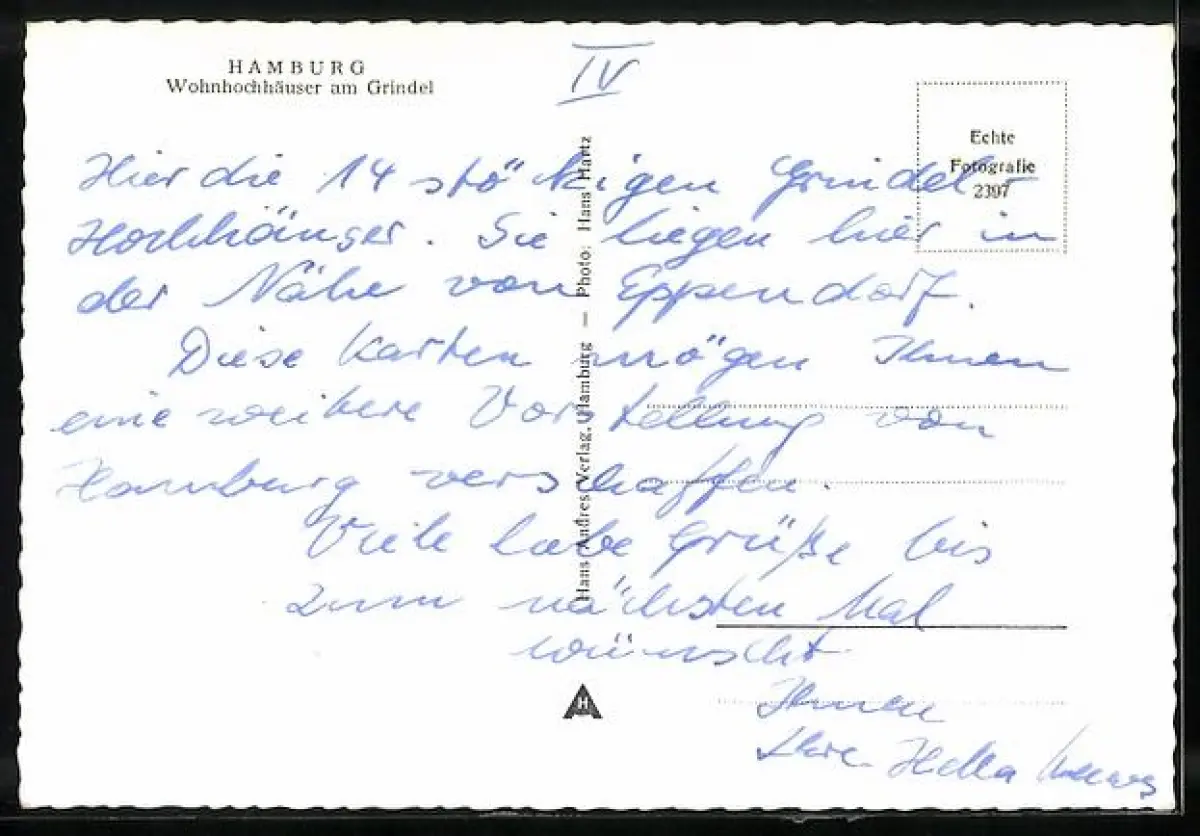 HAMBURG
Wohnhochhäuser am Grindel
IV
Echte
Fotografie
2397
Hier die 14 stöckigen Grindel-
Hochhäuser. Sie liegen hier in
der Nähe von Eppendorf.
Diese Karten mögen Ihnen
eine weitere Vorstellung von
Hamburg verschaffen.
Viele liebe Grüße bis
zum nächsten Mal
wünscht
Ihnen
Ihre Hella
Hans Andres Verlag, Hamburg — Photo: Hans Hartz
H